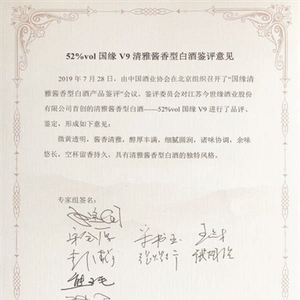 52%vol 国缘 V9 清雅酱香型白酒鉴评意见
2019 年 7 月 28 日，由中国酒业协会在北京组织召开了“国缘清
雅酱香型白酒产品鉴评”会议。鉴评委员会对江苏今世缘酒业股份
有限公司首创的清雅酱香型白酒——52%vol 国缘 V9 进行了品评、
鉴定，形成如下意见：
微黄透明，酱香清雅，醇厚丰满，细腻圆润，诸味协调，余味
悠长，空杯留香持久，具有清雅酱香型白酒的独特风格。
专家组签名：